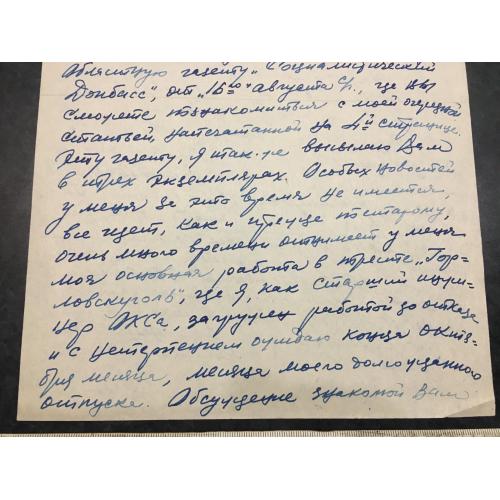 областную газету „Социалистический
Донбасс", от „16го" августа с/г., где Вы
сможете познакомиться с моей очередной
статьей, напечатанной на 4й странице.
Эту газету, я так-же высылаю Вам
в трех экземплярах. Особых новостей
у меня за это время не имеется,
все идет, как и прежде по старому,
очень много времени отнимает у меня
моя основная работа в тресте „Гор-
ловскуголь", где я, как старший инже-
нер ОКСа, загружен работой до отказа
и с нетерпением ожидаю конца октяб-
бря месяца, месяца моего долгожданного
отпуска. Обсуждение знакомой Вам